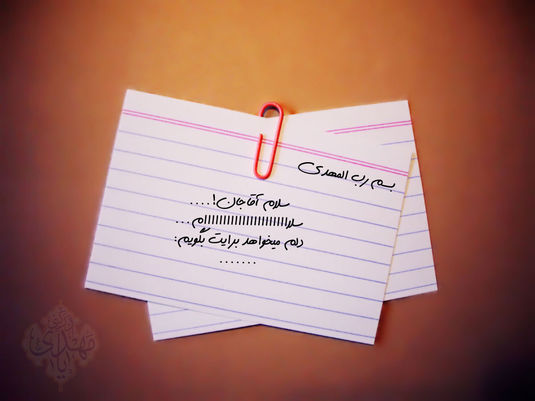 بسم رب المهدی
سلام آقاجان!....
سلاااااااااااااااااااااام...
دلم میخواهد برایت بگویم:
.......